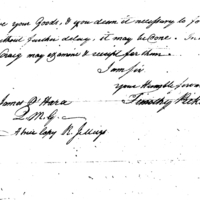 ve your Goods, & you deem it necessary to fo
without further delay, it may be done. In
Craig may examine & receipt for them.
I am Sir
your Humble Servant
Timothy Pick
James O'Hara
Q.M.G.
A true Copy